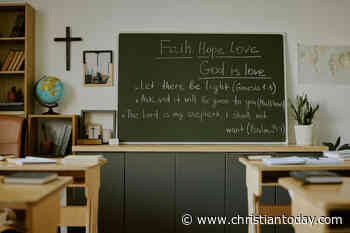 Faith Hope Love
God is love
Let there be light (Genesis 1:3)
Ask and it will be given to you
The Lord is my shepherd, I shall not
want (Psalm
www.christiantoday.com